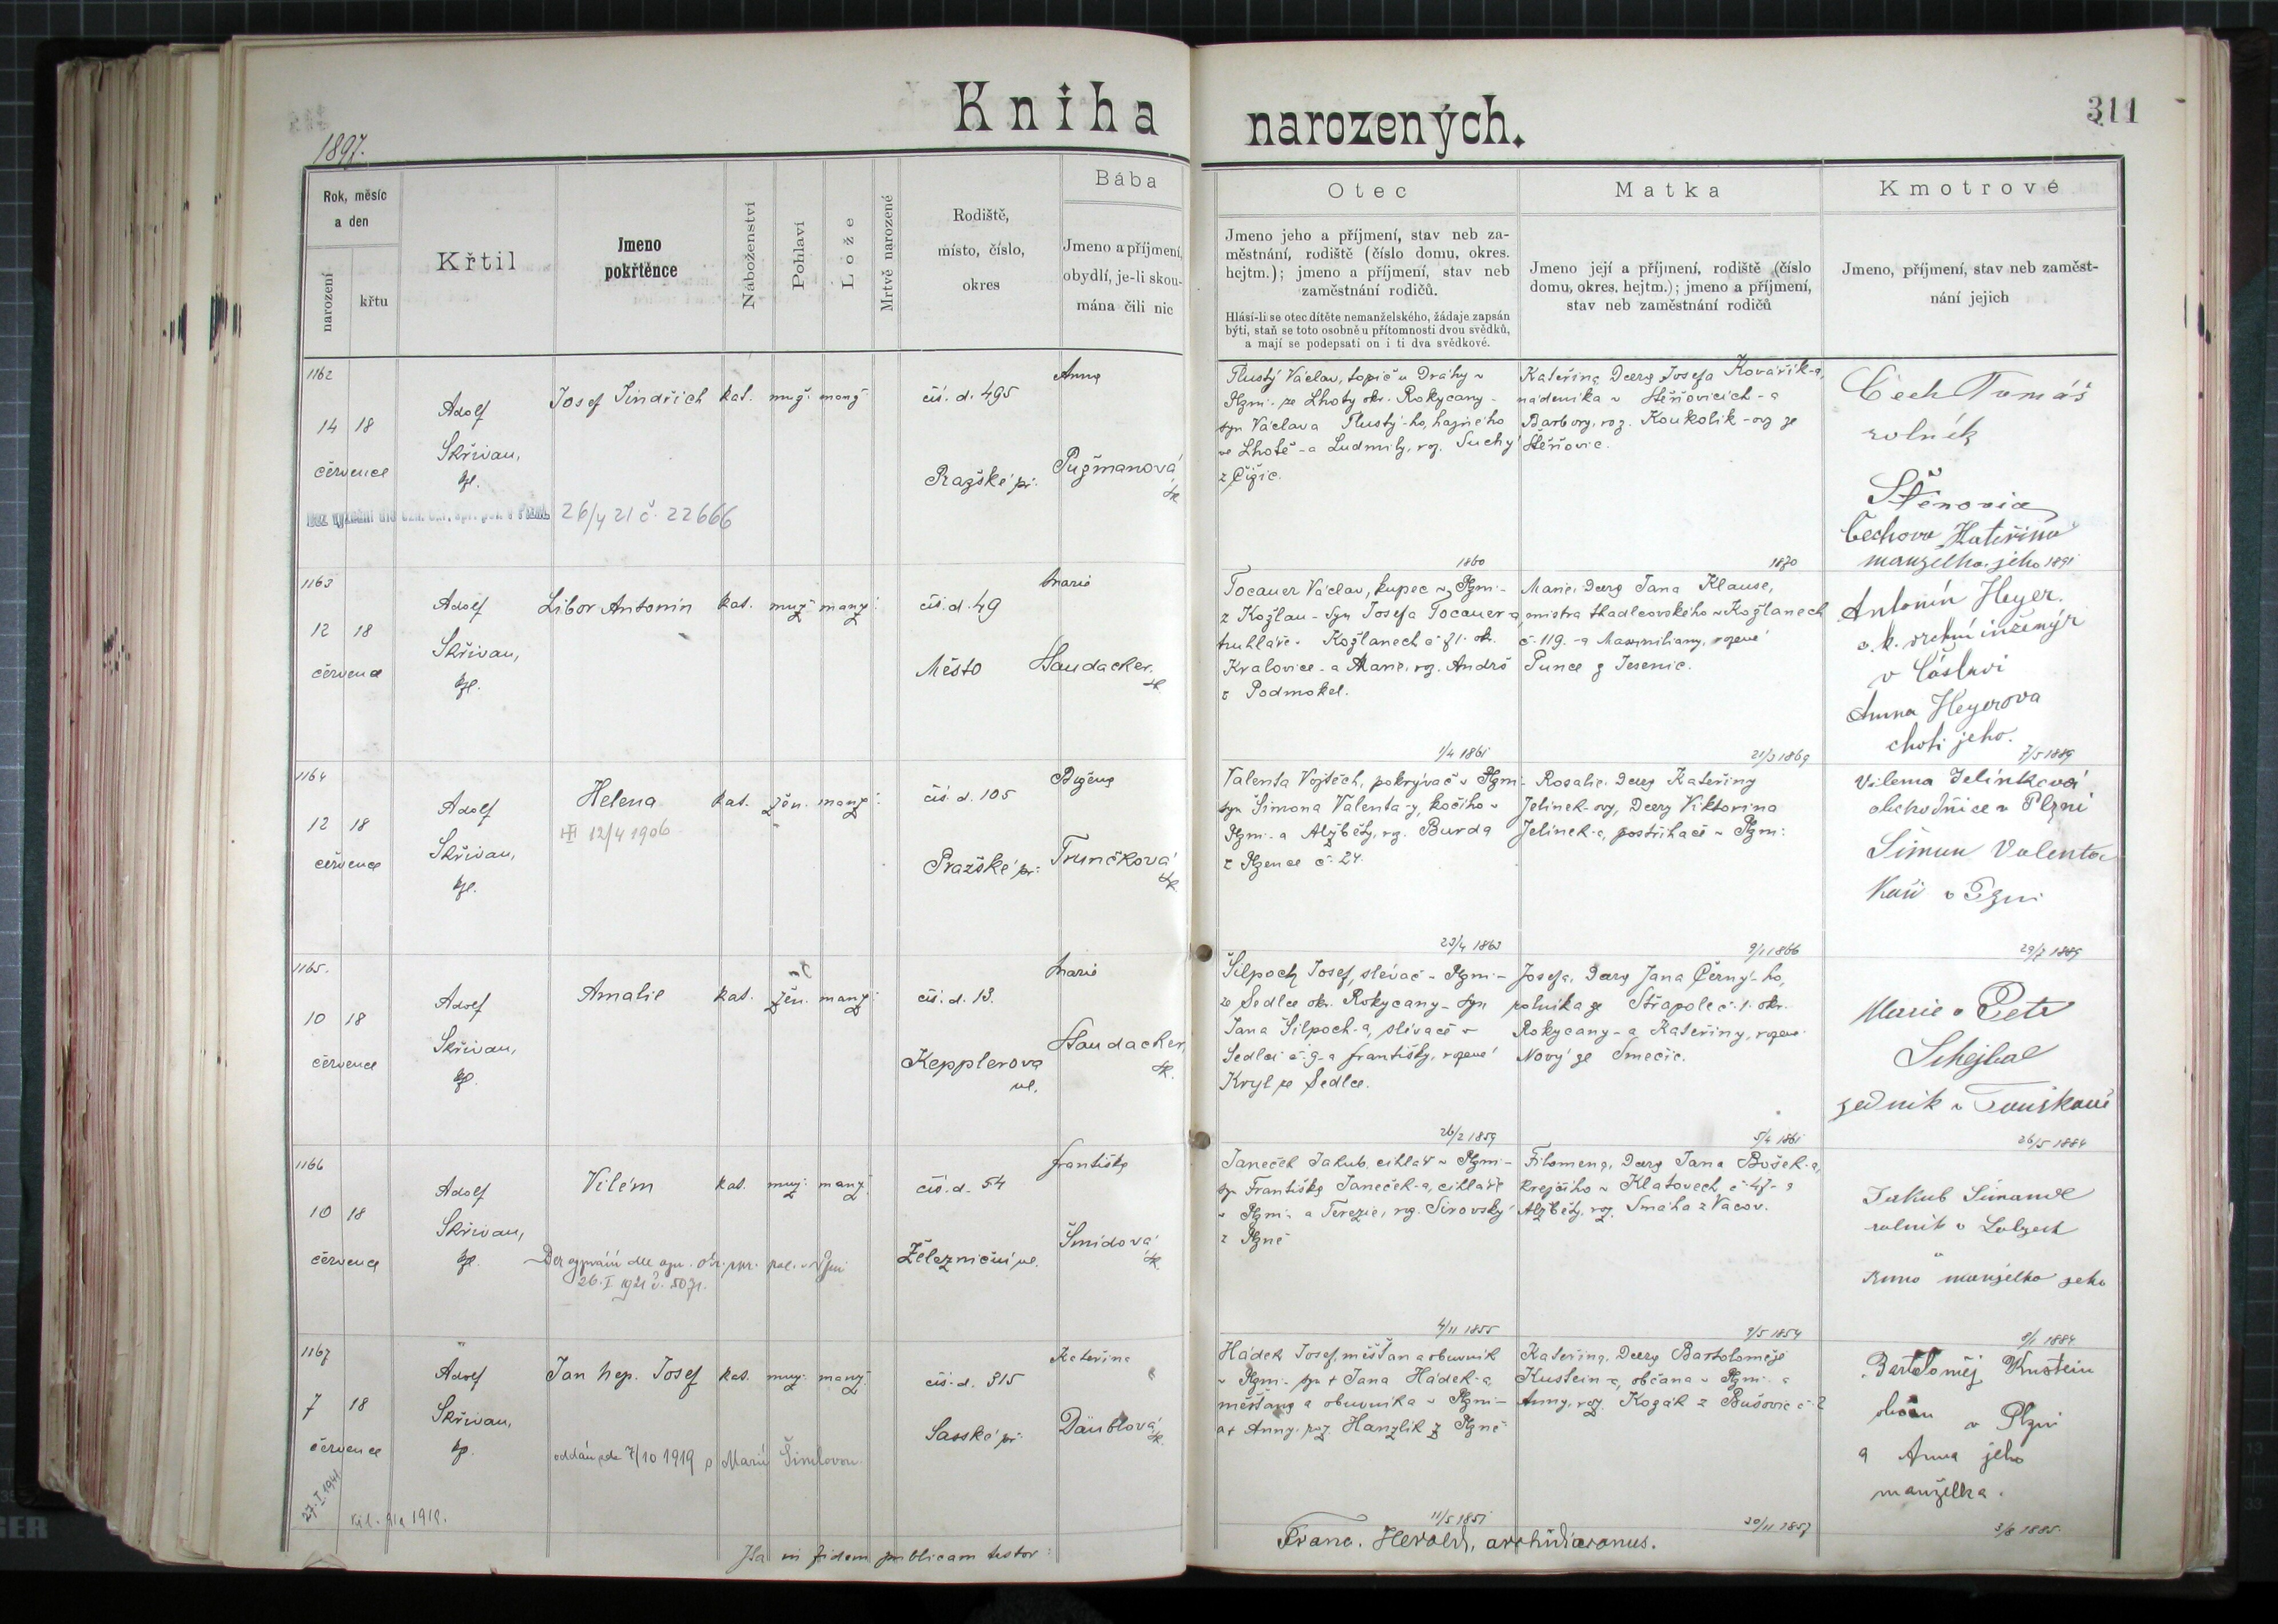 Kniha
narozených.
311
1897.
Rok, měsíc
a den
narození
křtu
Křtil
Jmeno
pokřtěnce
Náboženství
Pohlaví
Lože
Mrtvě narozené
Rodiště,
místo, číslo,
okres
Bába
Jmeno a příjmení,
obydlí, je-li skou-
mána čili nic
Otec
Jmeno jeho a příjmení, stav neb za-
městnání, rodiště (číslo domu, okres.
hejtm.); jmeno a příjmení, stav neb
zaměstnání rodičů.
Hlásí-li se otec dítěte nemanželského, žádaje zapsán
býti, staň se toto osobně u přítomnosti dvou svědků,
a mají se podepsati on i ti dva svědkové.
Matka
Jmeno její a příjmení, rodiště (číslo
domu, okres. hejtm.); jmeno a příjmení,
stav neb zaměstnání rodičů
Kmotrové
Jmeno, příjmení, stav neb zaměst-
nání jejich
1162
14 18
července
Adolf
Skřivan,
kpl.
Josef Jindřich
kat. muž. manž.
čís. d. 495
Pražské př.
Anna
Pužmanová
zk.
26/4 21 č. 22666
Tlustý Václav, topič u Dráhy v
Plzni - ze Lhoty okr. Rokycany -
syn Václava Tlustý-ho, hajného
ve Lhotě - a Ludmily, roz. Suchý
z Čižic.
1860
Kateřina, Dcera Josefa Kovářík-a,
nádeníka v Štěňovicích - a
Barbory, roz. Koukolík-ov ze
Štěňovic.
1870
Čech Tomáš
rolník
Štěnovice
Čechova Kateřina
manželka jeho 1891
1163
12 18
července
Adolf
Skřivan,
kpl.
Libor Antonín
kat. muž. manž.
čís. d. 49
Město
Marie
Handacker,
zk.
Tocauer Václav, kupec v Plzni -
z Kožlan - Syn Josefa Tocauer-a,
truhláře v Kožlanech č. 71. okr.
Kralovice - a Marie, roz. Andrš
z Podmokel.
1/4 1861
Marie, Dcera Jana Klause,
mistra tkadlcovského v Kožlanech
č. 119. - a Maxmiliany, rozené
Punce z Jesenic.
21/3 1869
Antonín Heyer.
c. k. vrchní inženýr
v Čáslavi
Anna Heyerova
choti jeho.
7/5 1889
1164
12 18
července
Adolf
Skřivan,
kpl.
Helena
12/4 1906
kat. žen. manž.
čís. d. 105
Pražské př.
Božena
Trunčková
zk.
Valenta Vojtěch, pokrývač v Plzni -
syn Šimona Valenta-y, kočího v
Plzni - a Alžběty, roz. Burda
z Plzence č. 24.
23/4 1863
Rosalie, Dcera Kateřiny
Jelínek-ovy, Dcery Viktorina
Jelínek-a, postřihače v Plzni.
9/1 1866
Vilema Jelínková
obchodnice v Plzni
Šimon Valenta
Kočí v Plzni
29/7 1889
1165.
10 18
července
Adolf
Skřivan,
kpl.
Amalie
kat. žen. manž.
čís. d. 13.
Kepplerova
ul.
Marie
Handacker,
zk.
Šilpoch Josef, slévač v Plzni -
ze Sedlce okr. Rokycany - syn
Jana Šilpoch-a, slévače v
Sedlci č. 9 - a Františky, rozené
Kryl ze Sedlce.
26/2 1859
Josefa, Dcera Jana Černý-ho,
rolníka ze Střapole č. 1. okr.
Rokycany - a Kateřiny, rozené
Nový ze Smečic.
5/4 1861
Marie a Petr
Schejbal
zedník v
26/5 1884
1166
10 18
července
Adolf
Skřivan,
kpl.
Vilém
kat. muž. manž.
Bez vyznání dle ozn. okr. spr. pol. v Plzni
26. I 1921 č.
čís. d. 54
Železniční ul.
Františka
Šmídová
zk.
Janeček Jakub, cihlář v Plzni -
syn Františka Janeček-a, cihláře
v Plzni - a Terezie, roz. Sirovský
z Plzně
4/11 1855
Filomena, Dcera Jana Bošek-a,
krejčího v Klatovech č. 47 - a
Alžběty, roz. Smáha z Vacov.
9/5 1854
Jakub Šimandl
rolník v
Anna manželka jeho
9/1 1884
1167
7 18
července
27. I. 1941
Adolf
Skřivan,
kp.
Jan Nep. Josef
kat. muž. manž.
oddán zde 7/10 1919 s Marií Šindlovou
čís. d. 315
Sasské př.
Kateřina
Däublová,
zk.
Hádek Josef, měšťan a obuvník
v Plzni - syn † Jana Hádek-a
měšťana a obuvníka v Plzni -
a † Anny, roz. Hanzlík z Plzně
11/5 1851
Kateřina, Dcera Bartoloměje
Kustein-a, občana v Plzni - a
Anny, roz. Kozák z Bušovic č. 2
30/11 1857
Bartoloměj Kustein
občan v Plzni
a Anna jeho
manželka.
3/8 1885.
Ita in fidem publicam testor:
Franc. Herold, archidiaconus.